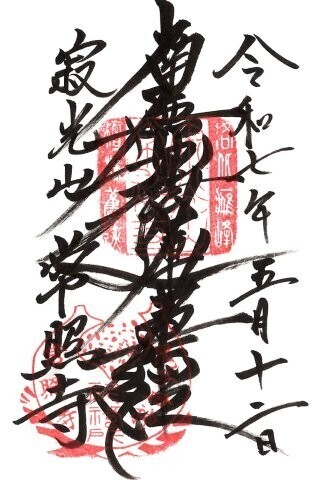 令和七年五月十二日
南無妙法蓮華經
寂光山 常照寺
洛北鷹峰